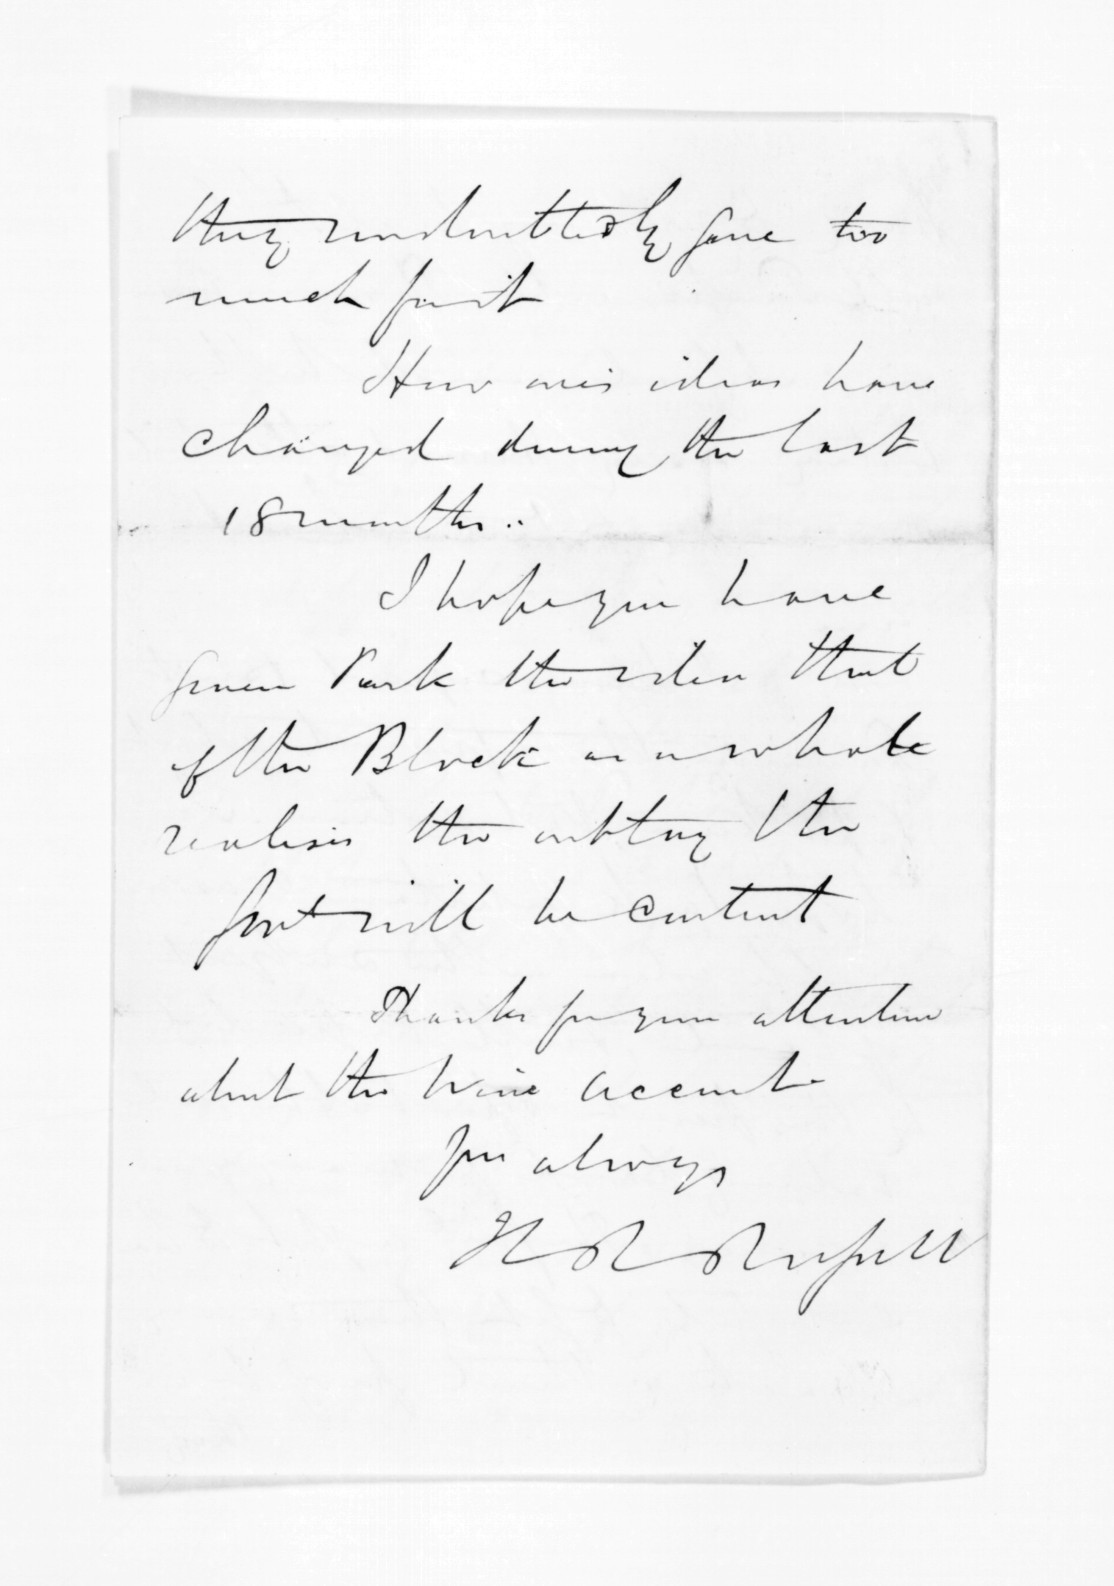 they undoubtedly gave too
much for it
How one's ideas have
changed during the last
18 months..
I hope you have
given Park the idea that
if the Block as a whole
realises the outlay the
Govt will be content
Thanks for your attention
about the Wine account.
Yrs always
H R Russell